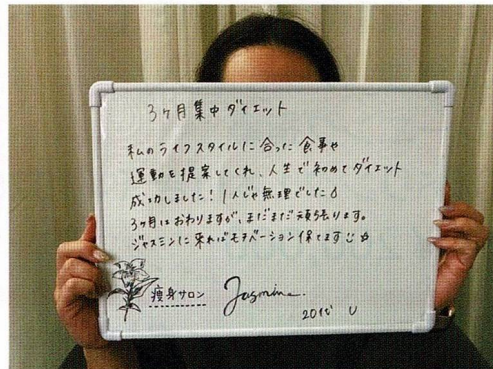 3ヶ月集中ダイエット
私のライフスタイルに合った食事や
運動を提案してくれ、人生で初めてダイエット
成功しました！1人じゃ無理でした
3ヶ月はおわりますが、まだまだ頑張ります。
ジャスミンに来ればモチベーション保てます
痩身サロン Jasmine.
20代 U